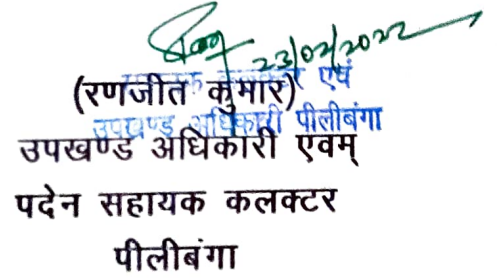 23/02/2022
सहायक कलक्टर एवं
(रणजीत कुमार)
उपखण्ड अधिकारी पीलीबंगा
उपखण्ड अधिकारी एवम्
पदेन सहायक कलक्टर
पीलीबंगा